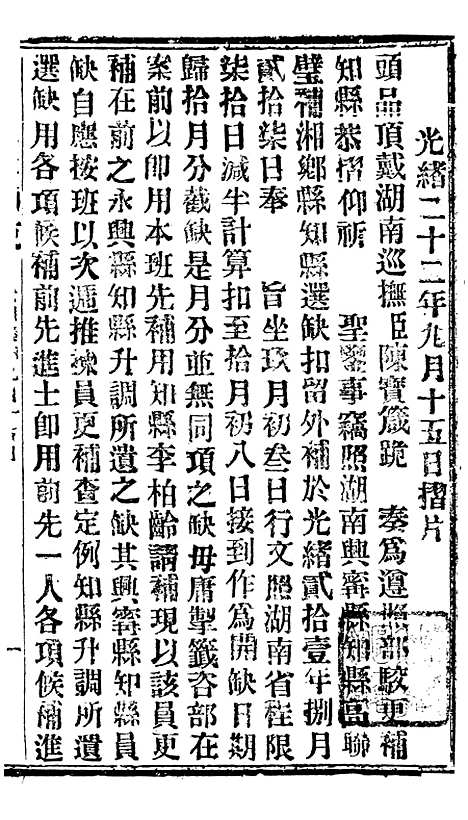 光緒二十二年九月十五日摺片
頭品頂戴湖南巡撫臣陳寶箴跪　奏爲遵照部駮更補
知縣恭摺仰祈　聖鑒事竊照湖南興甯縣知縣高聯
璧補湘鄉縣知縣選缺扣留外補於光緒貳拾壹年捌月
貳拾柒日奉　旨坐玖月初叁日行文照湖南省程限
柒拾日減半計算扣至拾月初八日接到作爲開缺日期
歸拾月分截缺是月分並無同項之缺毋庸掣籤咨部在
案前以即用本班先補用知縣李柏齡請補現以該員更
補在前之永興縣知縣升調所遺之缺其興甯縣知縣員
缺自應按班以次遞推揀員更補查定例知縣升調所遺
選缺用各項候補前先進士即用前先一人各項候補進
一